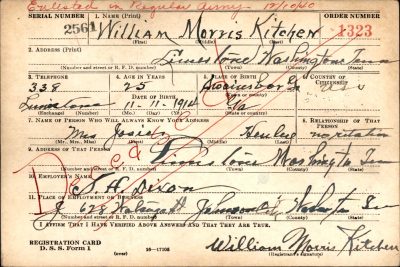 Enlisted in Regular Army 12/10/40
SERIAL NUMBER 1. NAME (Print) ORDER NUMBER
2561 William Morris Kitchen 1323
(First) (Middle) (Last)
2. ADDRESS (Print)
Limestone Washington Tenn
(Number and street or R. F. D. number) (Town) (County) (State)
3. TELEPHONE 4. AGE IN YEARS 5. PLACE OF BIRTH 6. COUNTRY OF CITIZENSHIP
338 25
DATE OF BIRTH
Limestone 11-11-1914 Ga
(Exchange) (Number) (Mo.) (Day) (Yr.) (State or country)
7. NAME OF PERSON WHO WILL ALWAYS KNOW YOUR ADDRESS 8. RELATIONSHIP OF THAT PERSON
Mrs no relation
(Mr., Mrs., Miss) (First) (Middle) (Last)
9. ADDRESS OF THAT PERSON
Limestone Washington Tenn
(Number and street or R. F. D. number) (Town) (County) (State)
10. EMPLOYER'S NAME
S. H. Dixon
11. PLACE OF EMPLOYMENT OR BUSINESS
628 Johnson City Tenn
(Number and street or R. F. D. number) (Town) (County) (State)
I AFFIRM THAT I HAVE VERIFIED ABOVE ANSWERS AND THAT THEY ARE TRUE.
REGISTRATION CARD
D. S. S. Form 1 16-17105 William Morris Kitchen
(Registrant's signature)